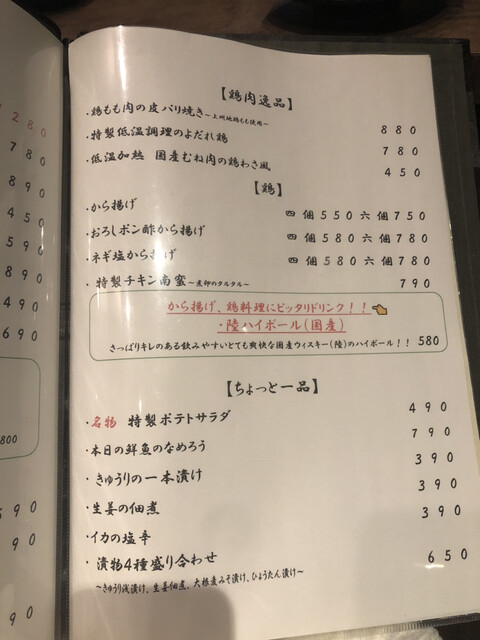 280
780
890
450
590
890
490
690
800
590
90
90
【鶏肉逸品】
・鶏もも肉の皮パリ焼き～上州地鶏もも使用～ 880
・特製低温調理のよだれ鶏 780
・低温加熱 国産むね肉の鶏わさ風 450
【鶏】
・から揚げ 四個550六個750
・おろしポン酢から揚げ 四個580六個780
・ネギ塩から揚げ 四個580六個780
・特製チキン南蜜～煮卵のタルタル～ 790
から揚げ、鶏料理にピッタリドリンク！！
・陸ハイボール(国産)
さっぱりキレのある飲みやすいとても爽快な国産ウィスキー(陸)のハイボール！！ 580
【ちょっと一品】
・名物 特製ポテトサラダ 490
・本日の鮮魚のなめろう 790
・きゅうりの一本漬け 390
・生姜の佃煮 390
・イカの塩辛 390
・漬物4種盛り合わせ 650
～きゅうり浅漬け、生姜佃煮、大根麦みそ漬け、ひょうたん漬け～